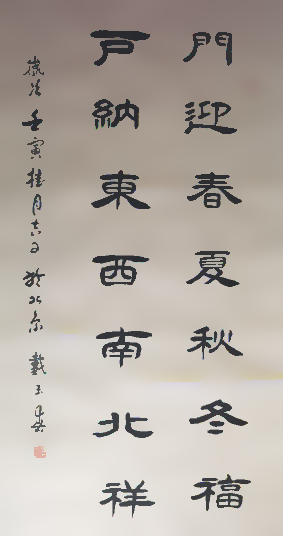 門迎春夏秋冬福
戶納東西南北祥
歲次壬寅桂月吉日於北京戴玉